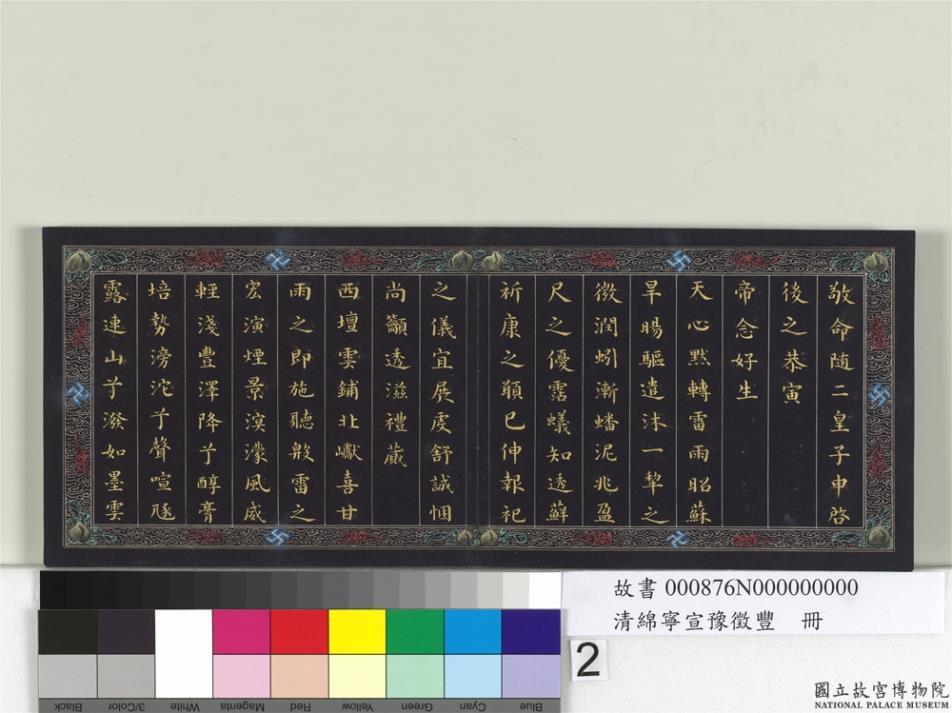 敬命随二皇子申啓
後之恭寅
帝念好生
天心默轉雷雨昭蘇
旱暘驅遣沐一犂之
徵潤蚓漸蟠泥兆盈
尺之優霑蟻知透蘚
祈康之願已伸報祀
之儀宜展虔舒誠悃
尚籲透滋禮蕆
西壇雲鋪北巘喜甘
雨之即施聽殷雷之
宏演煙景溟濛風威
輕淺豐澤降兮醇膏
培勢滂沱兮聲喧
露連山兮潑如墨雲
故書 000876N000000000
清綿寧宣豫徵豐 冊
2
Black
3/Color
White
Magenta
Red
Yellow
Green
Cyan
Blue
國立故宮博物院
NATIONAL PALACE MUSEUM